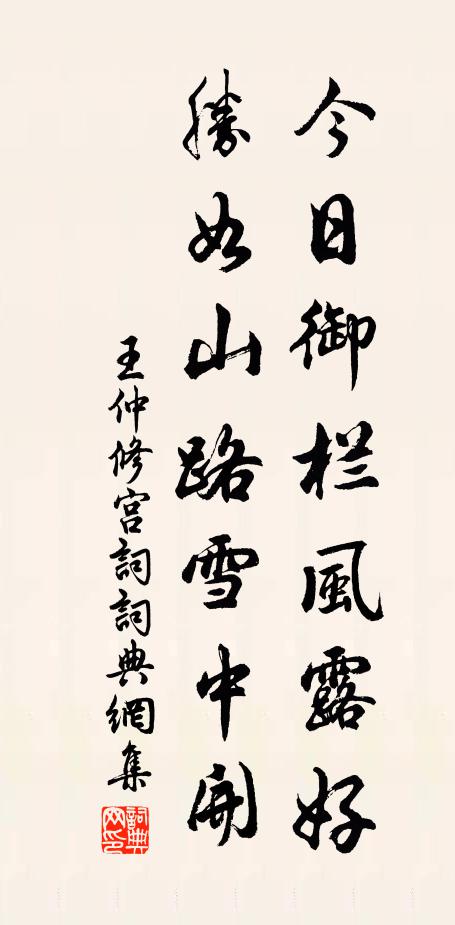 今日御栏風露好
勝如山路雪中開
王仲修宫詞詞典網集
詞典網印